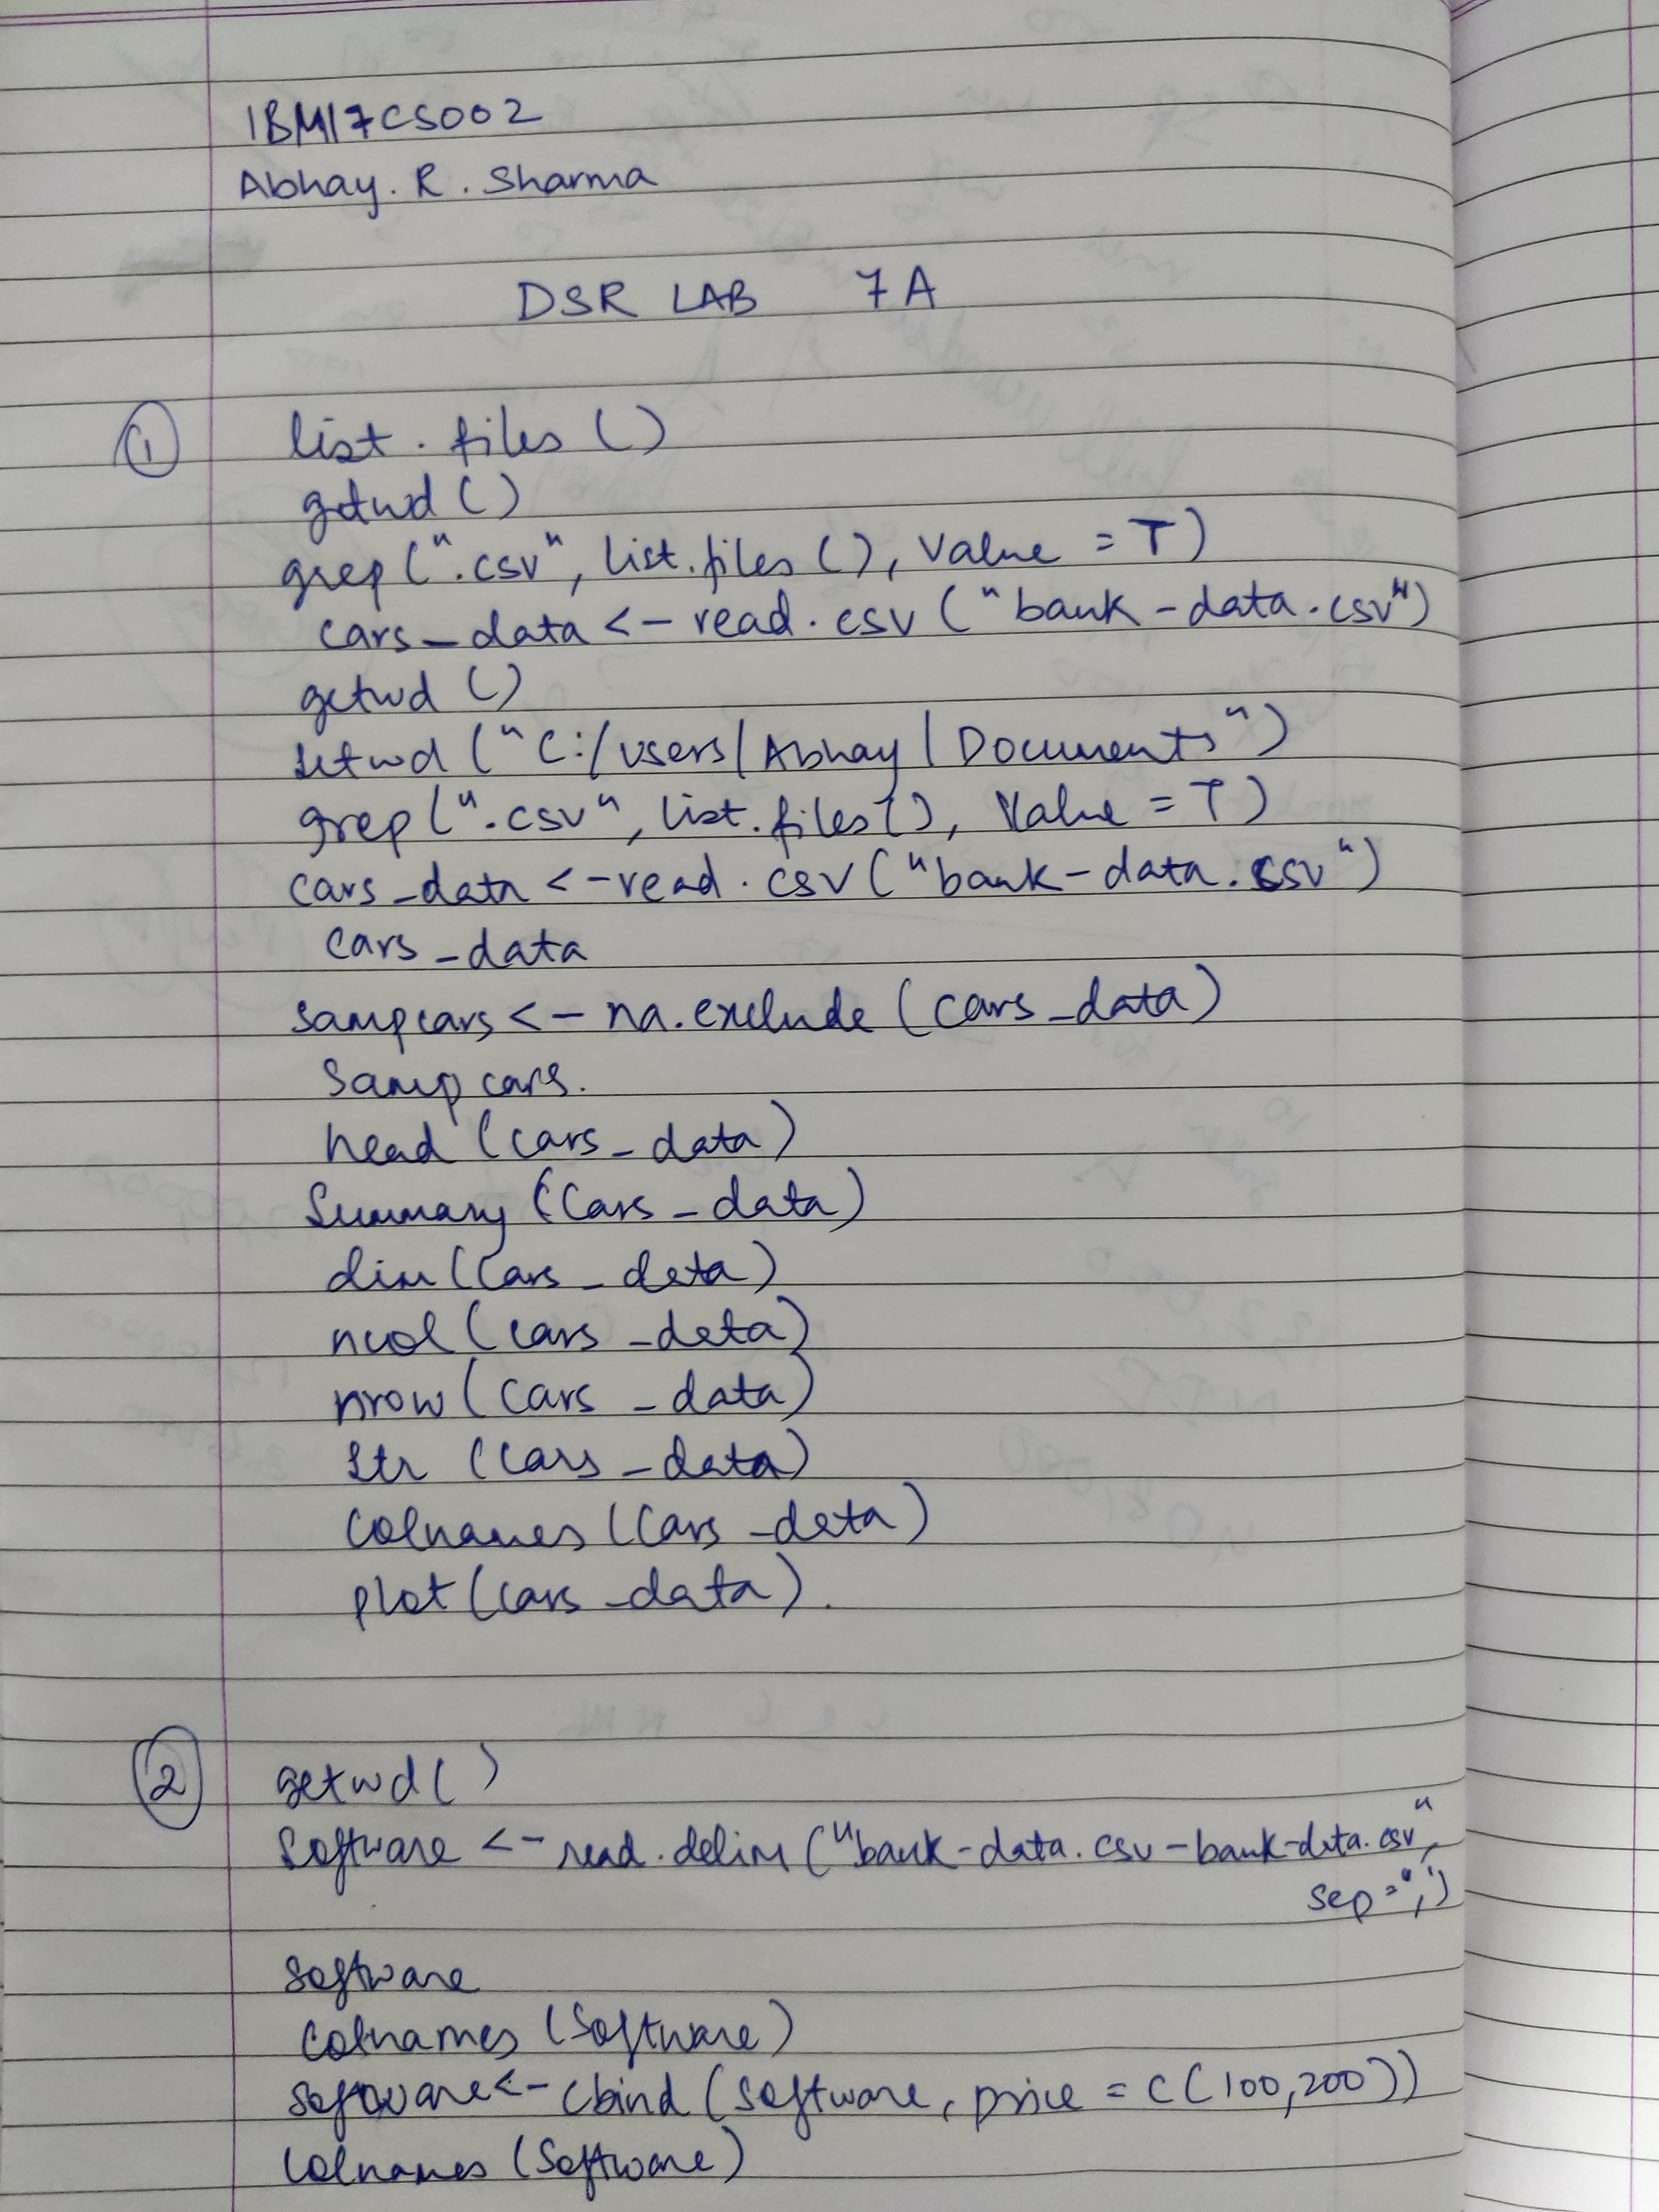 1BM17CS002
Abhay. R. Sharma
DSR LAB 7A
① list.files()
getwd()
grep(".csv", list.files(), Value = T)
cars_data <- read.csv("bank-data.csv")
getwd()
setwd("C:/users/Abhay/Documents")
grep(".csv", list.files(), Value = T)
cars_data <- read.csv("bank-data.csv")
cars_data
sampcars <- na.exclude(cars_data)
Sampcars.
head(cars_data)
Summary(cars_data)
dim(cars_data)
ncol(cars_data)
nrow(cars_data)
str(cars_data)
colnames(cars_data)
plot(cars_data).
② getwd()
Software <- read.delim("bank-data.csv-bank-data.csv",
sep=",")
software
colnames(Software)
software <- cbind(Software, price = c(100,200))
colnames(Software)